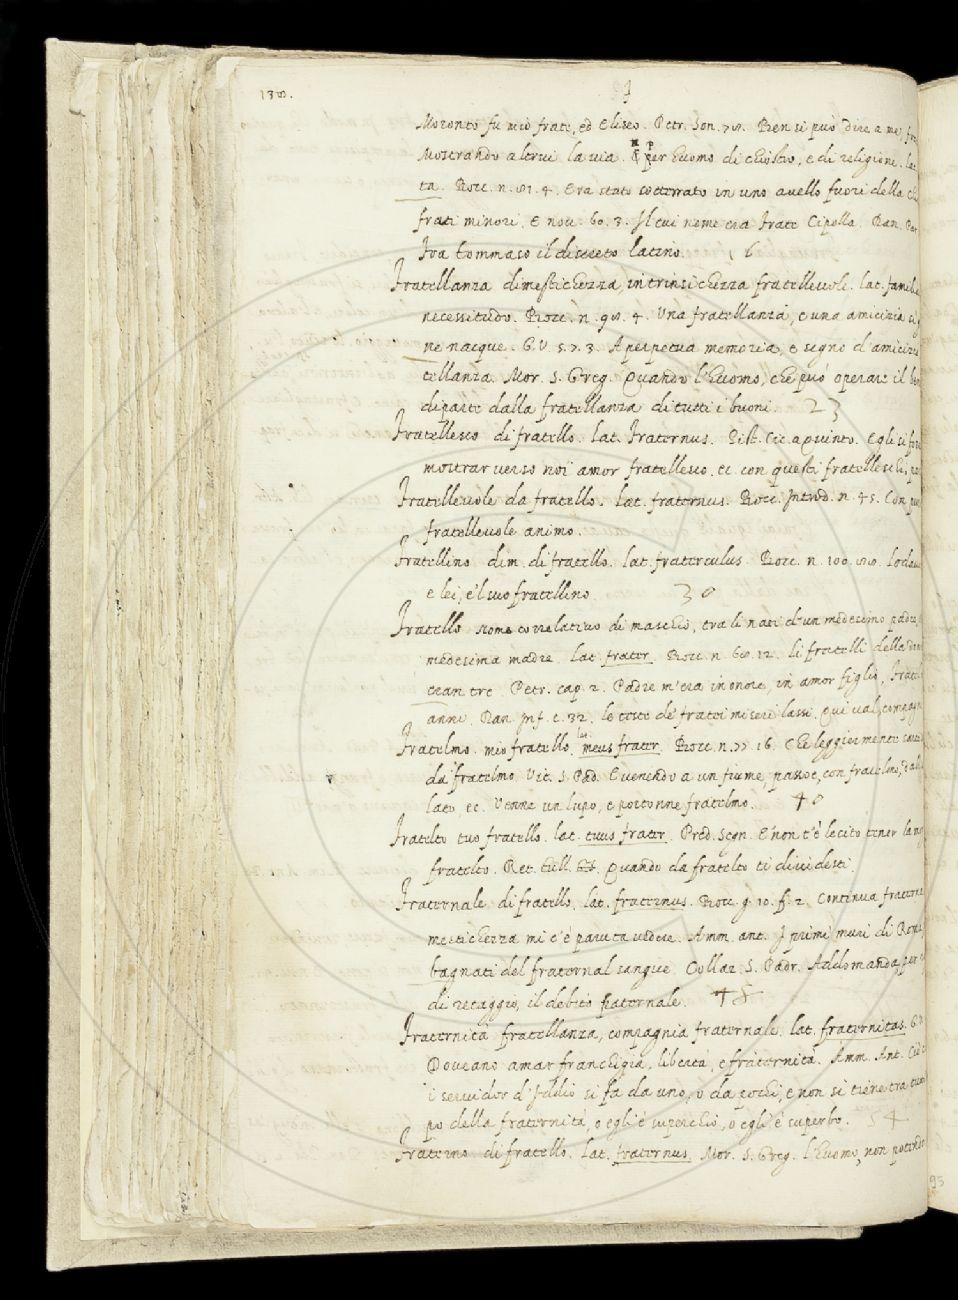 138.
F
Moronto fu mio frate, ed Eliseo. Petr. Son. 78. Ben si può dire a me,
Mostrando altrui la via. per huomo di chiostro, e di religione.
ta. Bocc. n. 81. 4. Era stato sotterrato in uno avello fuori della
frati minori. E nov. 60. 3. Il cui nome era frate Cipolla. Dan.
fra Tommaso il discreto latino. 16
Fratellanza dimestichezza, intrinsichezza fratellevole. lat.
necessitudo. Bocc. n. 98. 4. Una fratellanza, e una amicizia
ne nacque. G. V. 5. 7. 3. A perpetua memoria, e segno d'amicizia
tellanza. Mor. S. Greg. Quando l'huomo, che può operare il
diparte dalla fratellanza di tutti i buoni. 23
Fratellesco di fratello. lat. fraternus. Pist. Cic. a Quinto. Egli si
mostrar verso noi amor fratellesco. et con questi fratelleschi,
Fratellevole da fratello. lat. fraternus. Bocc. Introd. n. 45. Con
fratellevole animo.
Fratellino dim. di fratello. lat. fraterculus. Bocc. n. 100.
e lei, e'l suo fratellino. 30
Fratello nome correlativo di maschio, tra li nati d'un medesimo padre,
medesima madre. lat. frater. Bocc. n. 68. 12. li fratelli della
eran tre. Petr. cap. 2. Padre m'era in onore, in amor figlio,
anni. Dan. Inf. c. 32. le teste de' fratei miseri lassi. Qui val,
Fratelmo. mio fratello. lat. meus frater. Bocc. n. 77. 16. Che leggiermente
da fratelmo. Vit. S. Pad. E venendo a un fiume, passoe, con fratelmo,
lato, ec. Venne un lupo, e portonne fratelmo. 40
Fratelto tuo fratello. lat. tuus frater. Pred. Segn. E non t'è lecito tener la
fratelto. Ret. Tull. Quando da fratelto ti dividesti.
Fraternale di fratello. lat. fraternus. Bocc. g. 10. f. 2. Continua
mestichezza mi c'è paruta vedere. Amm. ant. I primi muri di
bagnati del fraternal sangue. Collaz. S. Padr. Addomanda,
di retaggio, il debito fraternale. 48
Fraternità fratellanza, compagnia fraternale. lat. fraternitas.
Doveano amar franchigia, libertà, e fraternità. Amm. Ant.
i servidor d'Iddio si fa da uno, o da pochi, e non si tiene tra
po della fraternità, o egli è soperchio, o egli è superbo. 54
Fraterno di fratello. lat. fraternus. Mor. S. Greg. l'huomo, non potendo
93